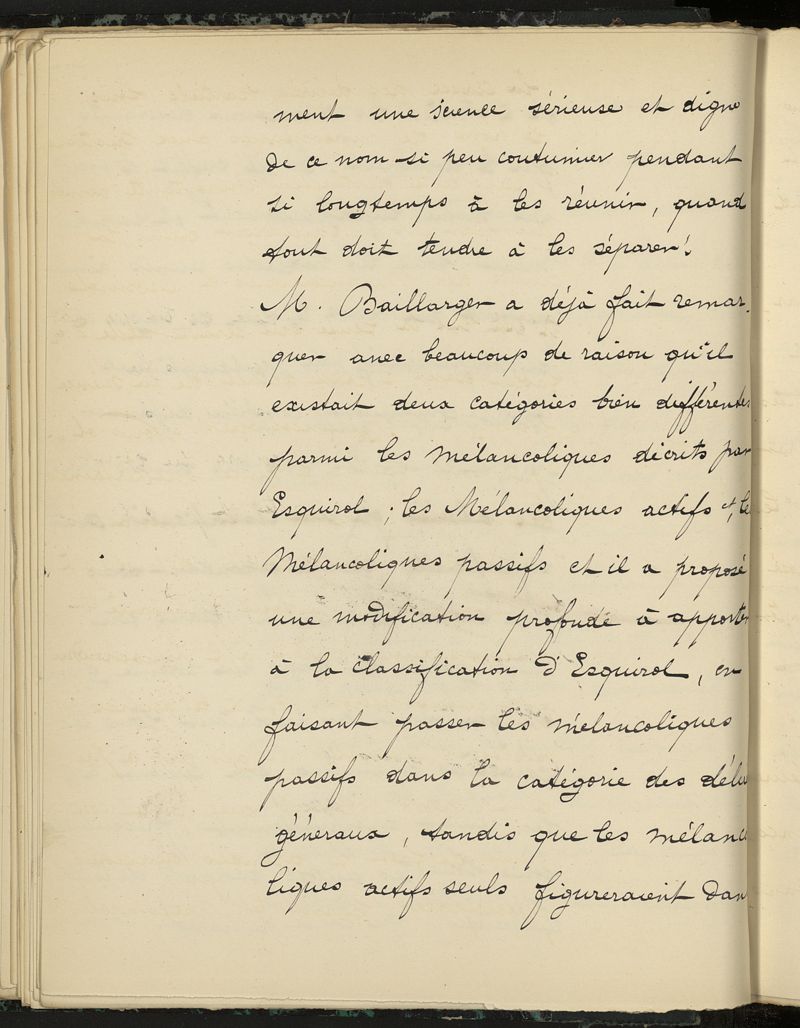 ment une science sérieuse et digne
de ce nom si peu coutumier pendant
si longtemps à les réunir, quand
tout doit tendre à les séparer !
M. Baillarger a déjà fait remar-
quer avec beaucoup de raison qu'il
existait deux catégories bien différentes
parmi les mélancoliques décrits par
Esquirol ; les Mélancoliques actifs et, les
Mélancoliques passifs et il a proposé
une modification profonde à apporter
à la classification d'Esquirol, en
faisant passer les mélancoliques
passifs dans la catégorie des
généraux, tandis que les mélanco
liques actifs seuls figureraient dans